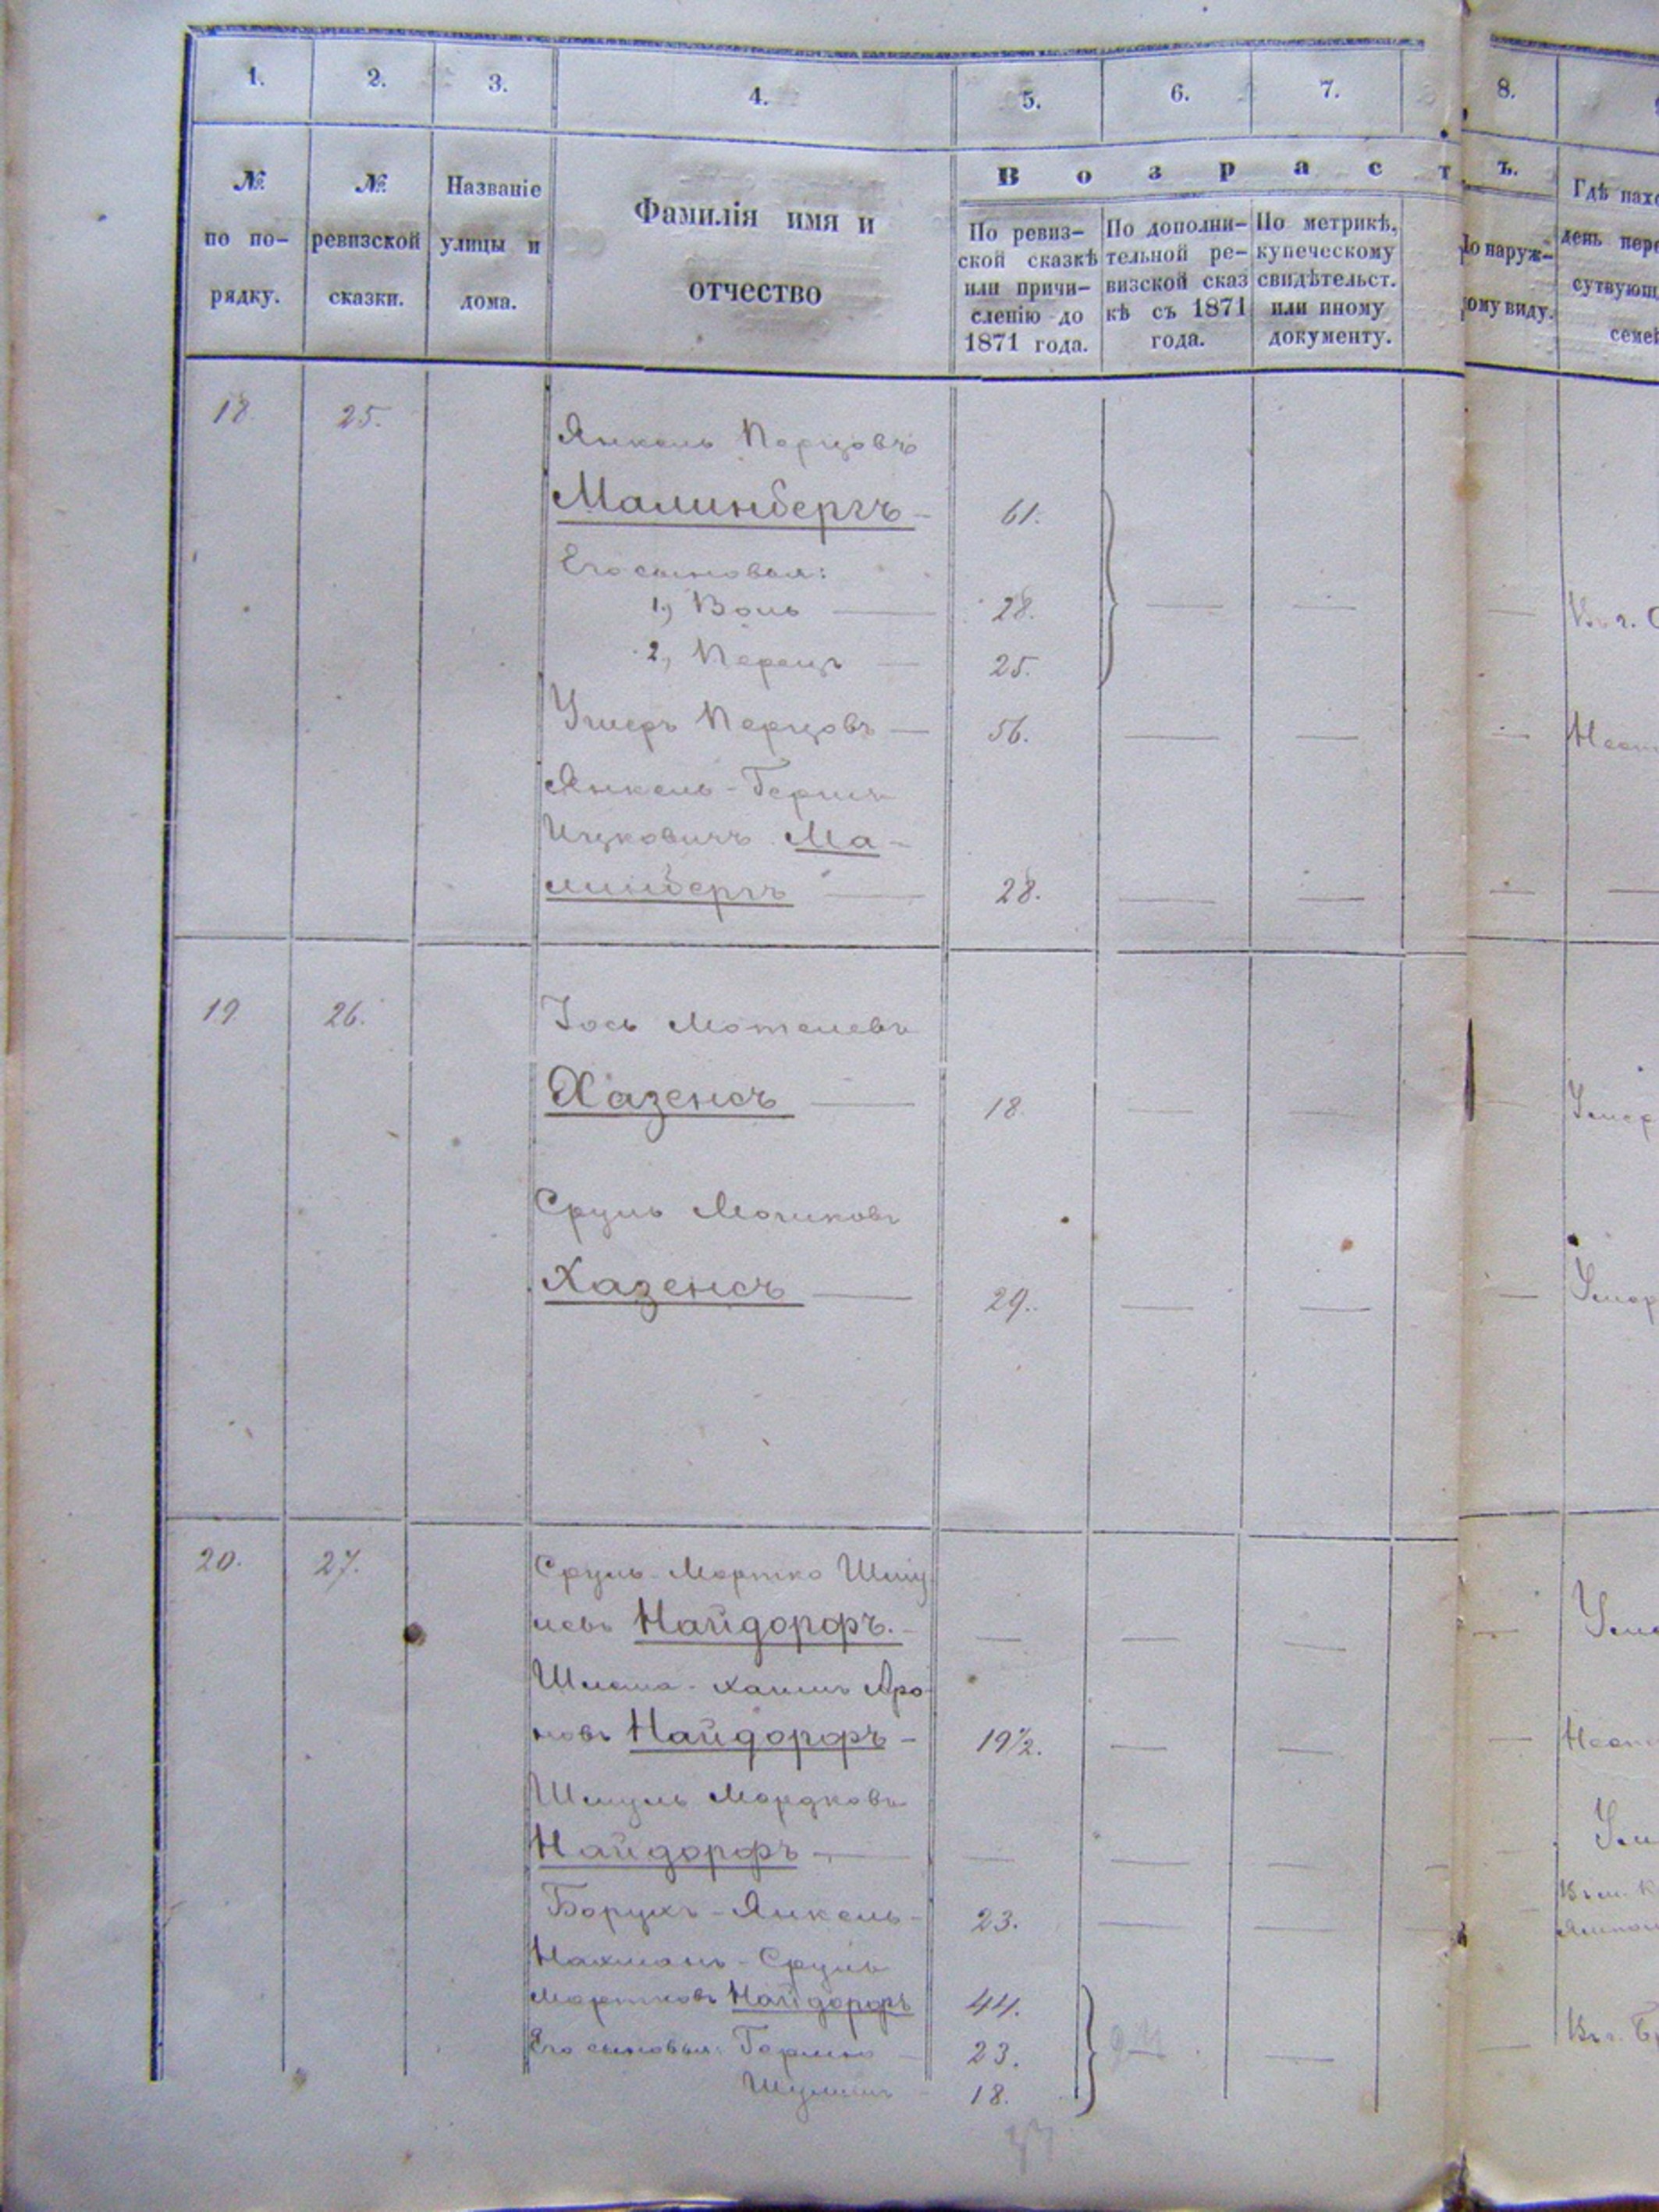 1. 2. 3. 4. 5. 6. 7. 8.
№ по по-рядку.
№ ревизской сказки.
Названіе улицы и дома.
Фамилія имя и отчество
В о з р а с т ъ.
По ревиз-ской сказкѣ или причи-сленію до 1871 года.
По дополни-тельной ре-визской сказ кѣ съ 1871 года.
По метрикѣ, купеческому свидѣтельст. или иному документу.
По наруж-ному виду.
Гдѣ нахо
день пере
сутвующ
семей
18. 25. Янкель Перцовъ
Малинбергъ - 61.
Его сыновья:
1.) Воль — 28. — — —
2.) Перецъ — 25.
Ушеръ Перцовъ — 56. — — —
Янкель-Гершъ
Ицковичъ Ма-
линбергъ — 28. — — — —
19 26. Іось Мотелевъ
Хазенсъ — 18. — — —
Сруль Мошковъ
Хазенсъ — 29. — — —
20. 27. Сруль-Мортко Шму
левъ Найдорфъ. - — — — —
Шлема-Хаимъ Аро
новъ Найдорфъ - 19½. — — —
Шмуль Мордковъ
Найдорфъ — — — —
Борухъ-Янкель- 23. — —
Нахманъ-Сруль
Мортковъ Найдорфъ 44.
Его сыновья: Гершко — 23. —
Шулимъ - 18.